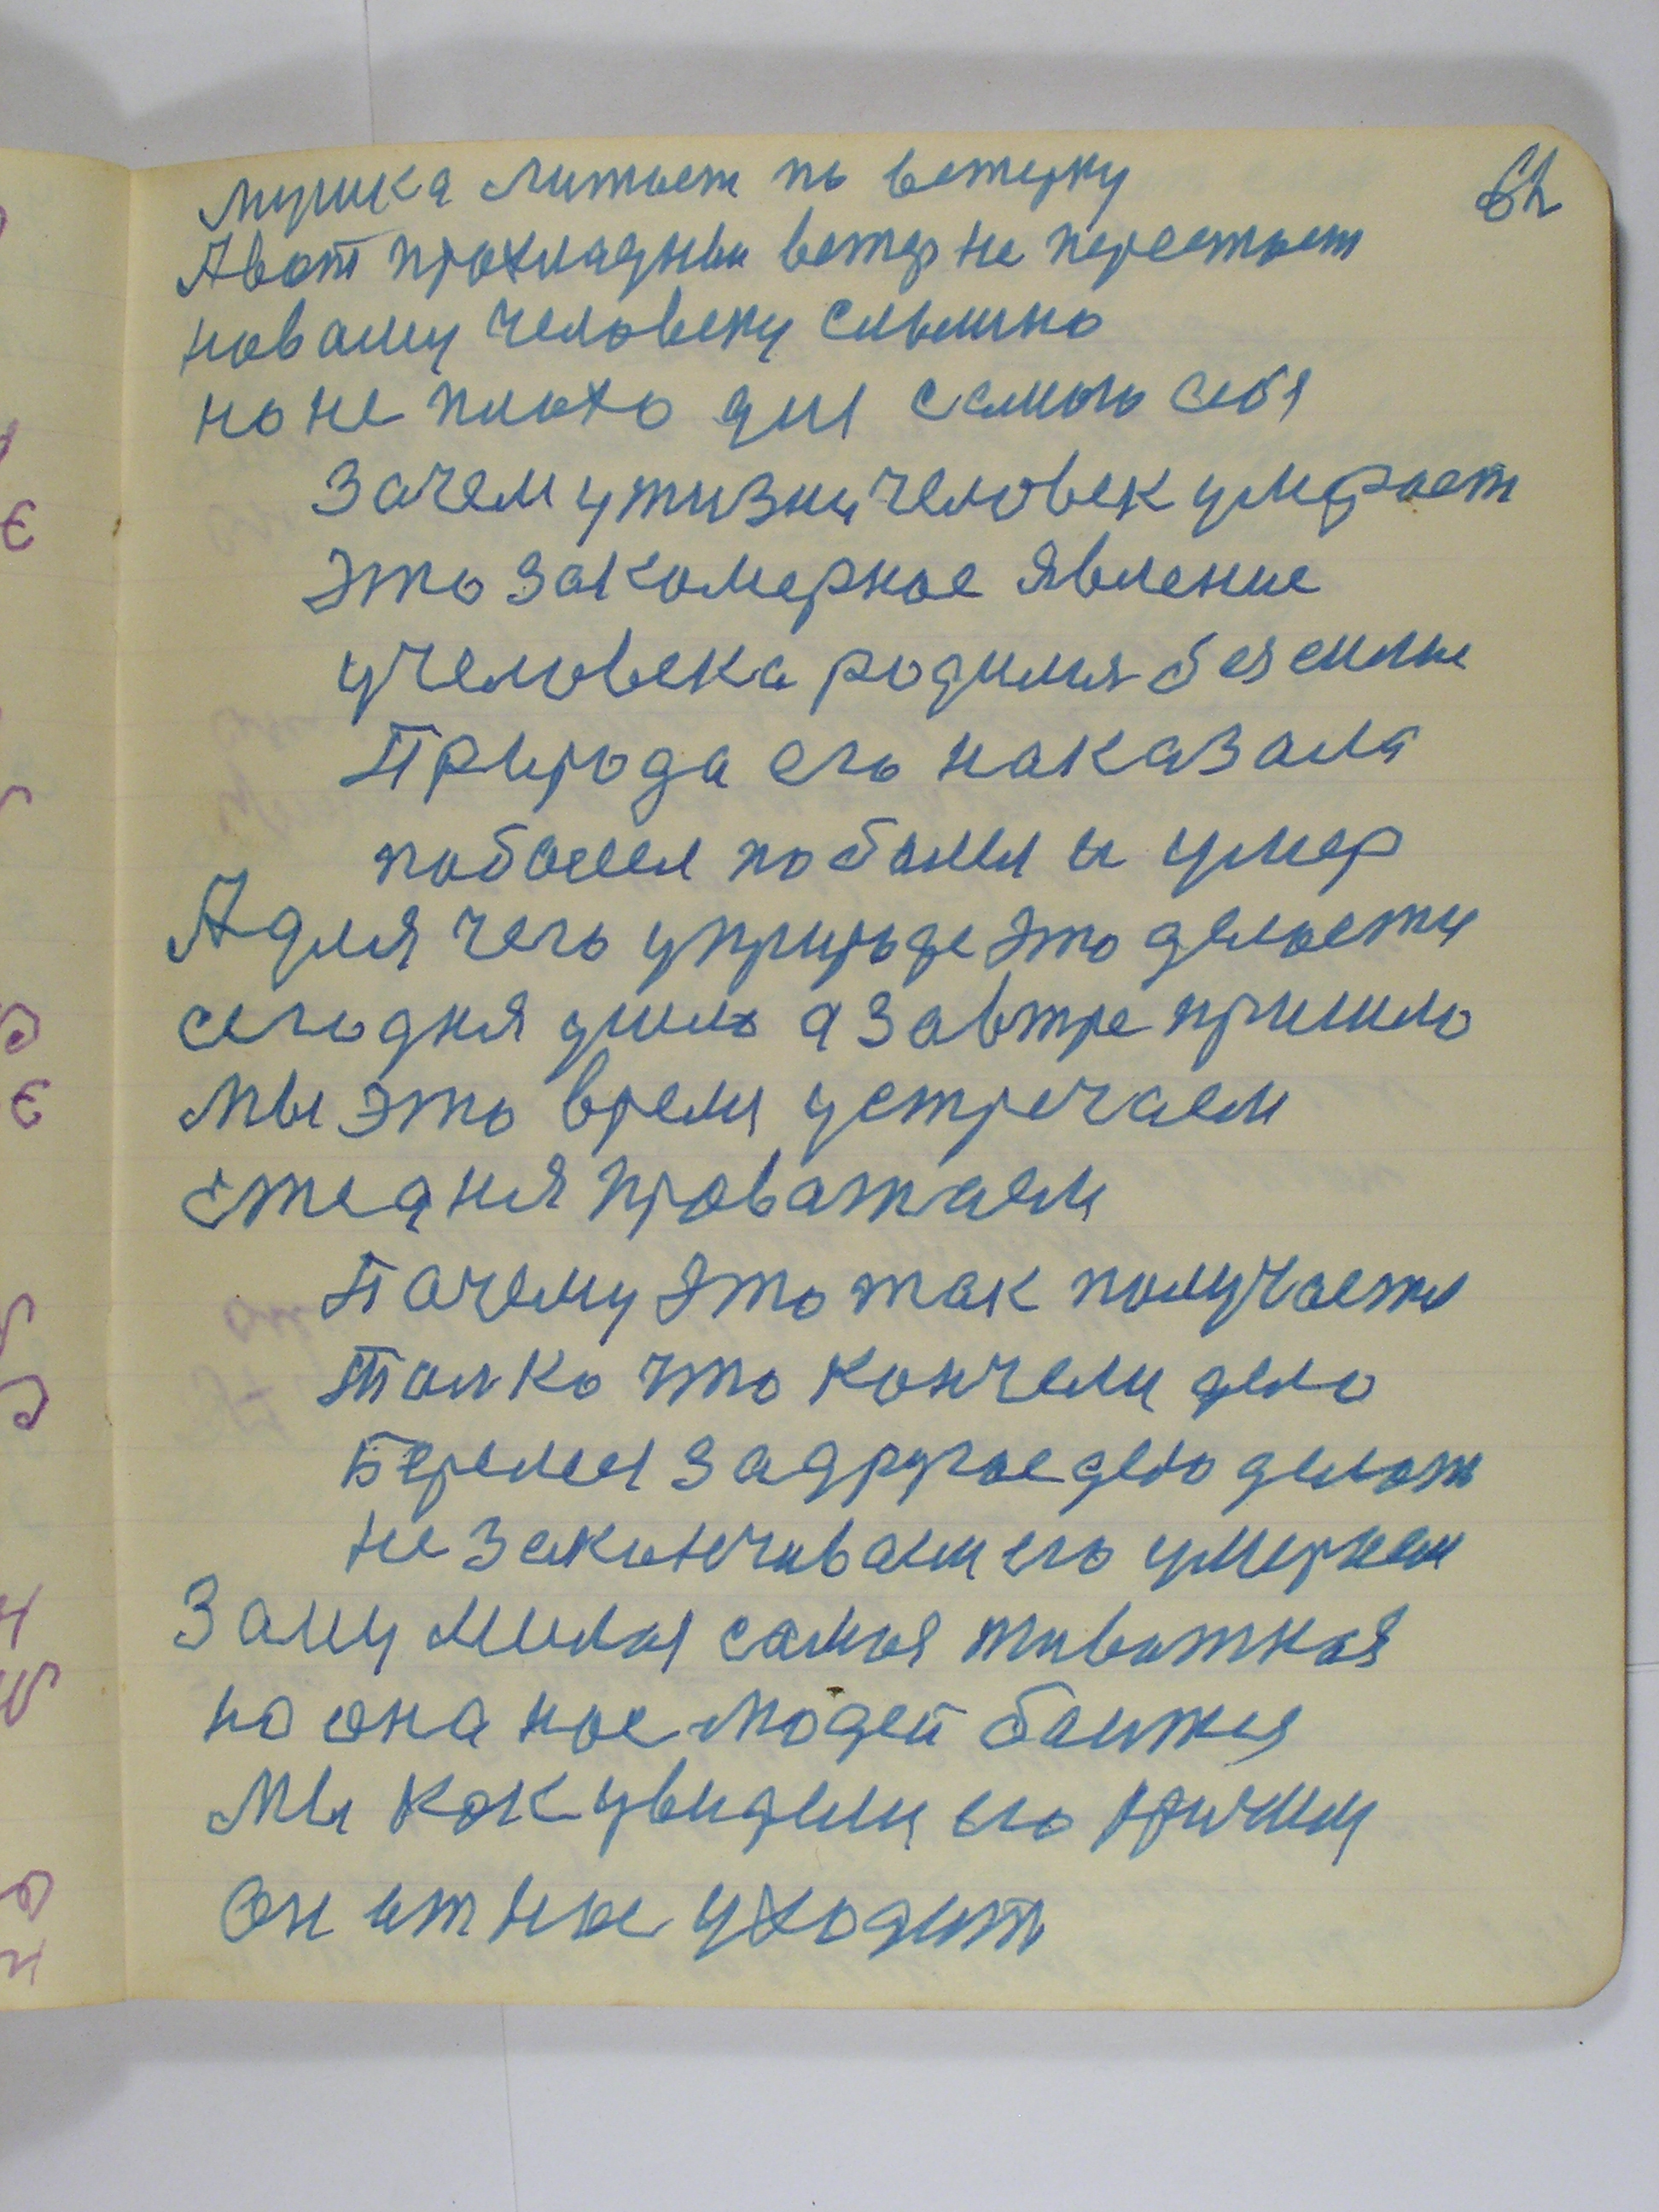 62
мушка литает по ветерку
А вот прохладный ветер не перестает
новаму человеку слышно
но не плохо для самого себя
Зачем у жизни человек умирает
это закомерное явление
у человека родимля безсилие
Природа его наказала
поболел поболел и умер
А для чего у природе это делается
сегодня ушло а завтре пришло
мы это время устречаем
ежедня проважаем
Пачему это так получаетя
Толко что кончели дело
Беремся за другое дело делать
не заканчиваем его умираем
Заму милоя самоя живатная
но она нас людей баится
Мы как увидели его кричим
он ит нас уходит